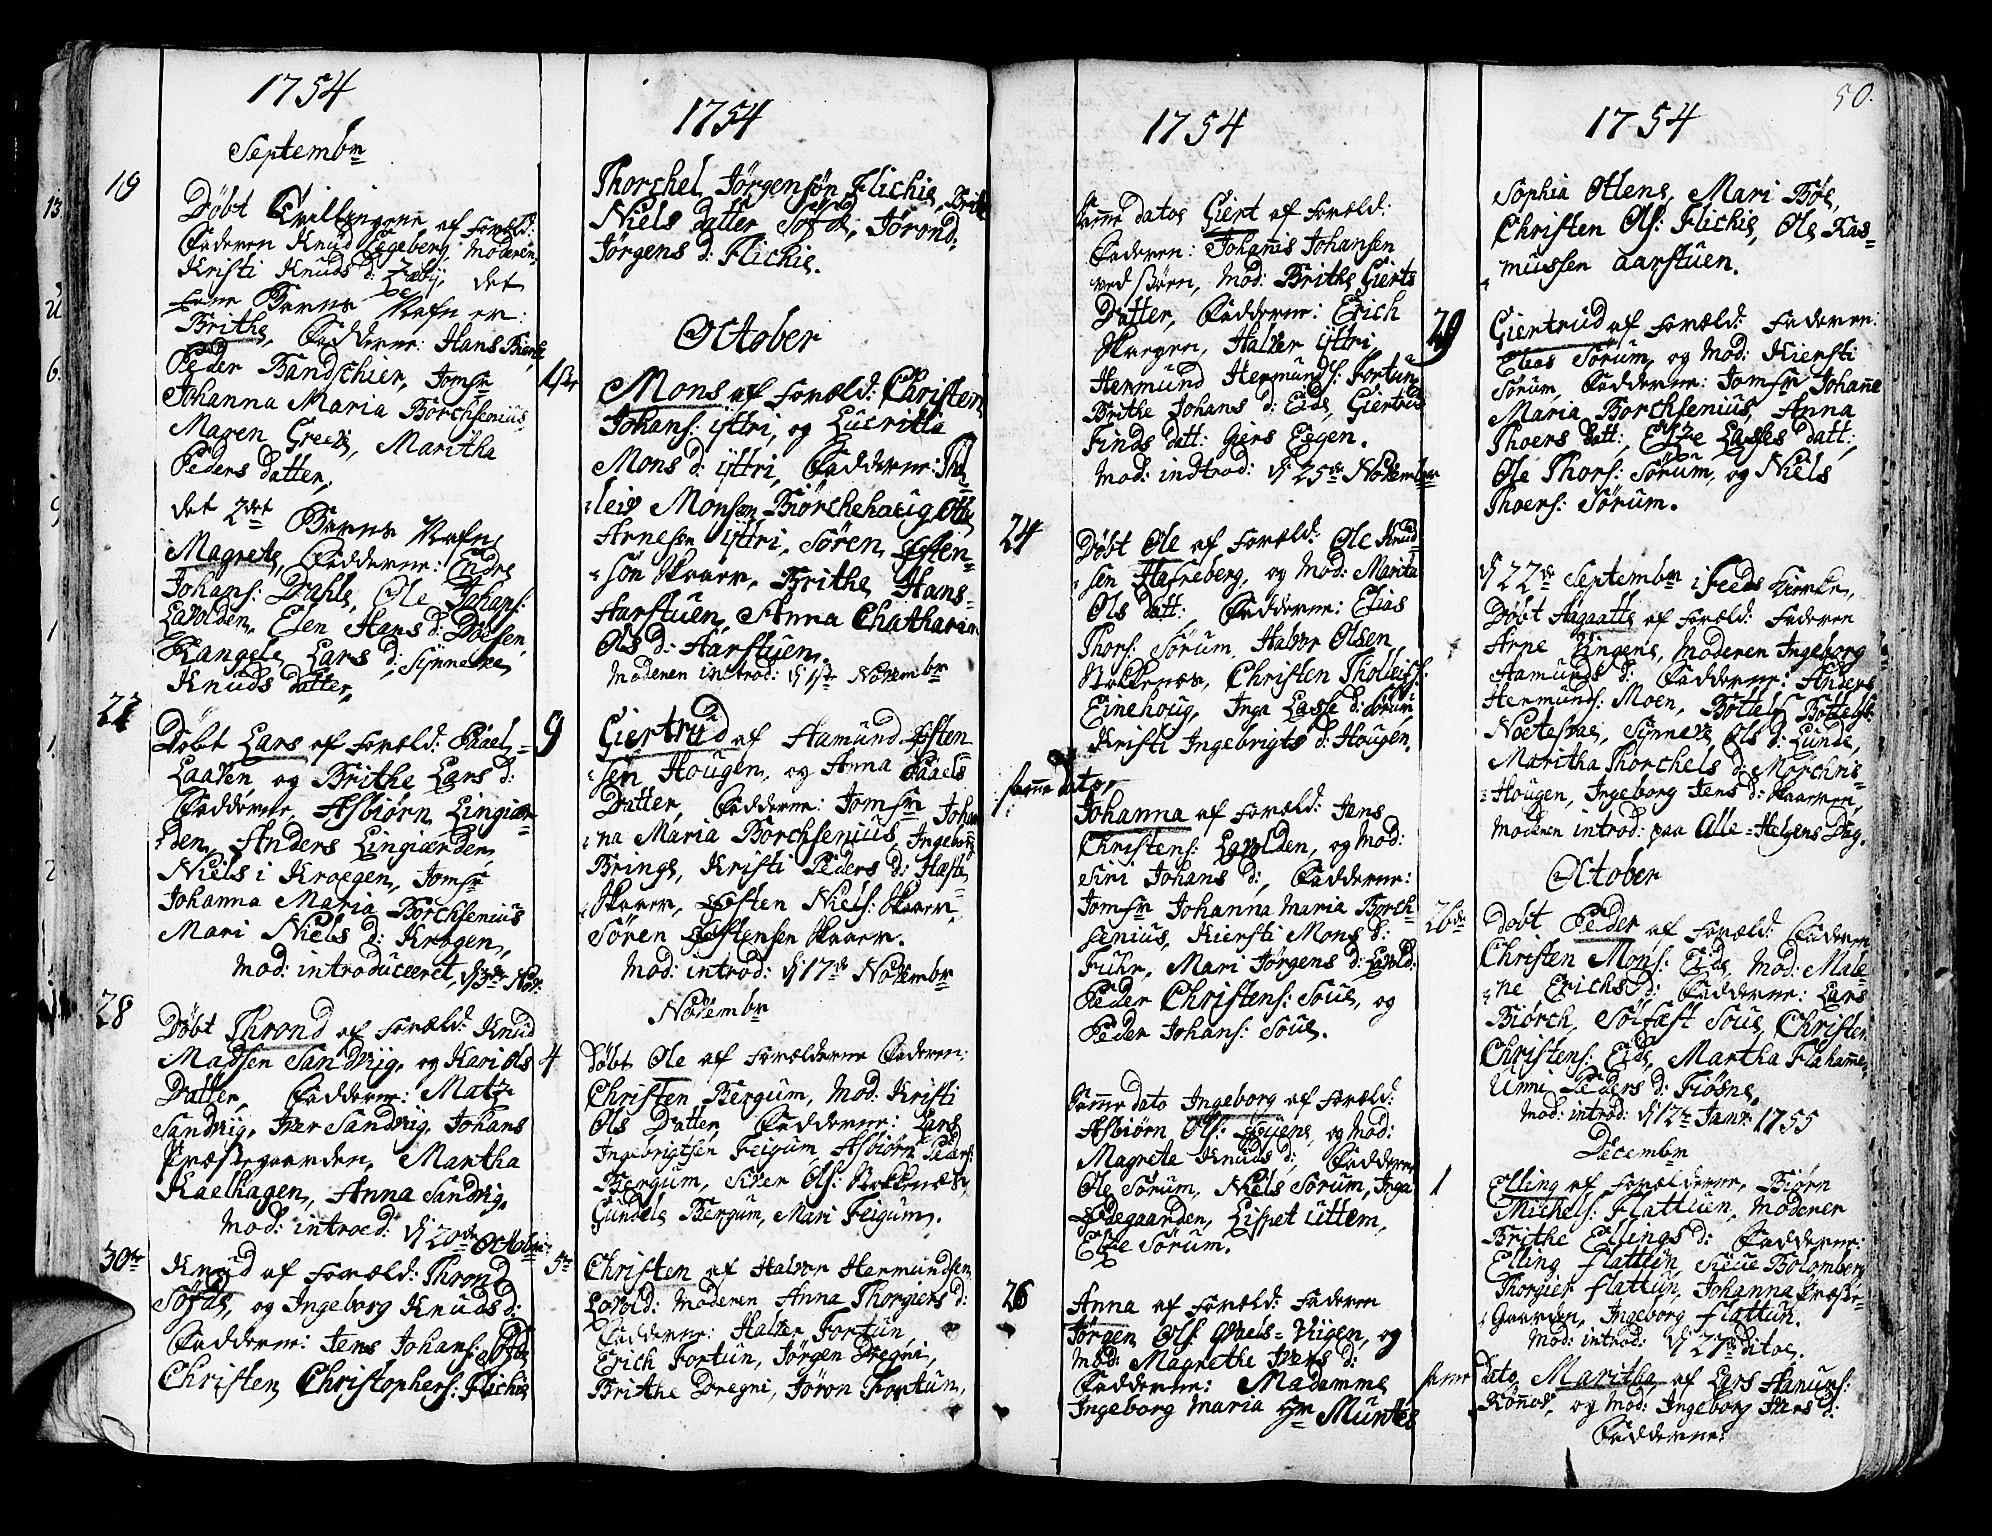 1754
Septembr
19
Döbt Tvillingerne af Foræld:
Faderen Knud Eegeberg, Moderen
Kristi Knuds d: det
Barns Nafn er:
Brithe, Faddere: Hans
Peder Bandschier, Jomfr
Johanna Maria Borchsenius,
Maren Maritha
Peders Datter,
det 2det Barns Nafn
Magrete, Faddere: Endre
Johans: Dahle, Ole Johans:
Lavolden, Elen Hans d: Döesen,
Rangele Lars d: Synneve
Knuds Datter,
22
Döbt Lars af Foræld: Paael
Laaven og Brithe Lars d:
Faddere, Asbiörn Lingiær-
-den, Anders Lingiærden,
Niels i Kroegen, Jomfr
Johanna Maria Borchsenius
Mari Niels d: Krogen,
Mod: introduceeret, d 3de Nov:
28
Döbt Thrond af Foræld: Knud
Madsen Sandvig, og Kari Ols
Datter, Faddere: Matz
Sandvig, Iver Sandvig, Johans
Præstegaarden, Martha
Kaelhagen, Anna Sandvig,
Mod: introd: d 20de Octobr:
30te
Knud af Foræld: Thrond
og Ingeborg Knuds d:
Faddere: Jens Johans:
Christen Christophers: Flichie
1754
Thorchel Jörgensön Flichie, Brite
Niels datter Jörond
Jörgens d: Flichie.
October
1ste
Mons af Foræld: Christen
Johans: yttri, og Lucritta
Mons d: yttri, Faddere: Thol
-leiv Monsen Biörchehaug, Otte
Arnesen yttri, Sören Østen-
-sön Skaar, Brithe Hans
Aarstuen, Anna Chatharia
Ols d: Aarstuen,
Moderen introd: d 1ste Novembr
9
Giertrud af Aamund Østen
-sen Hougen, og Anna Paaels
Datter, Faddere: Jomfr Johan
-na Maria Borchsenius, Ingeborg
Brings, Kristi Peders d: Hæste
Skaar, Østen Niels: Skaar,
Sören Østensen Skaar.
Mod: introd: d 17de Novembr
Novembr
4
Döbt Ole af Forælderne Faderen:
Christen Bergum, Mod: Kristi
Ols Datter, Faddere: Lars
Ingebrigtsen Feigum, Asbiörn Peders:
Bergum, Siver Ols: Nockenæs,
Gundele Bergum, Mari Feigum.
5te
Christen af Halvor Hermundsen
Lovold: Moderen Anna Thorgiers d:
Faddere: Halver Fortun,
Erich Fortun, Jörgen Dregni,
Brithe Dregni, Jöron Fortun,
1754
samme datoe Giert af Foræld:
Faderen: Johanis Johansen
ved Siöen, Mod: Brithe Gierts
Datter, Faddere: Erich
Skagen, Halver yttri,
Hermund Hermunds: Fortun
Brithe Johans d: Eide, Giertrud
Finds datt: Giers Eegen.
Mod: indtrod: d 25de Novembr
24
Döbt Ole af Foræld: Ole Knud-
-sen Hafreberg, og Mod: Marita
Ols datt: Faddere: Elias
Thors: Sörum, Halvor Olsen
Nockenæs, Christen Tholleifs:
Einehoug, Inga Lasse d: Sörum,
Kristi Ingebrigts d: Hougen.
samme dato,
Johanna af Foræld: Jens
Christens: Lavolden, og Mod:
Siri Johans d:, Faddere:
Jomfr Johanna Maria Borch-
senius, Kiersti Mons d:
Fuhr, Mari Jörgens d: Lavold:
Peder Christens: Soue, og
Peder Johans: Soue.
Samme dato Ingeborg af Foræld:
Asbiörn Ols: Øyene, og Mod:
Magrete Knuds d:, Faddere
Ole Sörum, Niels Sörum, Inga
Ødegaarden, Lispet uttem,
Elze Sörum.
26
Anna af Foræld: Faderen
Jörgen Ols: Qvaels-Viigen, og
Mod: Magrethe Ivers d:
Faddere: Madamme
Ingeborg Maria Hr Muntes
1754
50.
Sophia Ottens, Mari Böe,
Christen Ols: Flichie, Ole Ras-
mussen aarstuen.
29
Giertrud af Foræld: Faderen:
Elias Sörum, og Mod: Kiersti
Sörum, Faddere: Jomfr Johanne
Maria Borchsenius, Anna
Thoers datt:, Elze Lasses datt:,
Ole Thors: Sörum, og Niels
Thoers: Sörum.
d 22de Septembr i Feeds Kirke,
Döbt Aagaatte af Foræld: Faderen
Arne Ringene, Moderen Ingeborg
Aamunds d: Faddere: Anders
Hermunds: Moen, Bottels Bottelfs:
Noctesvae, Synneve Ols d: Lunde,
Maritha Thorchels d: Mörchris-
-Hougen, Ingeborg Jens d: Skaaren,
Moderen introd: paa Alle-Helgens Dag.
October
26de
Döbt Peder af Foræld: Faderen
Christen Mons: Eide, Mod: Male-
-ne Erichs d: Faddere: Lars
Biörch, Solfæst Soue, Christen
Christens: Eide, Martha Flahamme,
Unni Peders d: Fiösne.
Mod: introd: d 12te Janr: 1755
Decembr
1
Elling af Forælderne, Biörn
Michels: Flattun, Moderen
Brithe Ellings d: Faddere:
Elling Flattun, Bolomberg
Thorgier Flattun, Johanna Præste-
-Gaarden, Ingeborg Flattun.
Mod: introd: d 27de ditoe.
samme
dato, Maritha af Lars Hanuns:
Rönnei, og Mod: Ingeborg Ivers d:
Faddere: